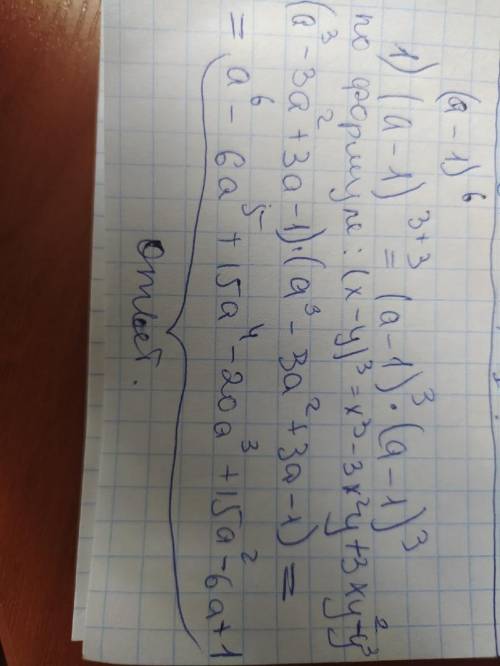 (a-1)⁶
1) (a-1)³⁺³ = (a-1)³·(a-1)³
по формуле: (x-y)³ = x³-3x²y+3xy²-y³
(a³-3a²+3a-1)·(a³-3a²+3a-1) =
= a⁶-6a⁵+15a⁴-20a³+15a²-6a+1
Ответ.